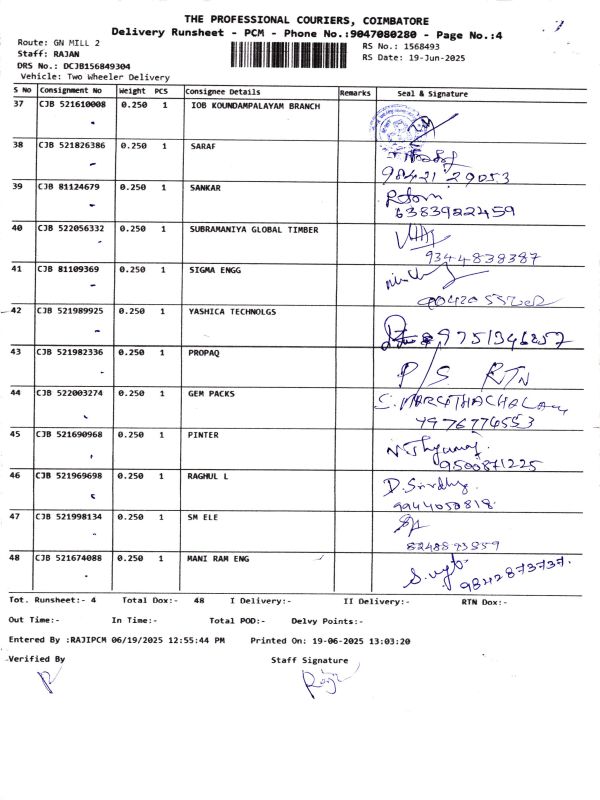 THE PROFESSIONAL COURIERS, COIMBATORE
Delivery Runsheet - PCM - Phone No.:9047080280 - Page No.:4
Route: GN MILL 2
RS No.: 1568493
Staff: RAJAN
RS Date: 19-Jun-2025
DRS No.: DCJB156849304
Vehicle: Two Wheeler Delivery
S No Consignment No Weight PCS Consignee Details Remarks Seal & Signature
37 CJB 521610008 0.250 1 IOB KOUNDAMPALAYAM BRANCH
38 CJB 521826386 0.250 1 SARAF
98421 29053
39 CJB 81124679 0.250 1 SANKAR
6383922459
40 CJB 522056332 0.250 1 SUBRAMANIYA GLOBAL TIMBER
9344838387
41 CJB 81109369 0.250 1 SIGMA ENGG
42 CJB 521989925 0.250 1 YASHICA TECHNOLGS
9751346257
43 CJB 521982336 0.250 1 PROPAQ
P/S RTN
44 CJB 522003274 0.250 1 GEM PACKS
7976776553
45 CJB 521690968 0.250 1 PINTER
9500871225
46 CJB 521969698 0.250 1 RAGHUL L
9944050818
47 CJB 521998134 0.250 1 SM ELE
48 CJB 521674088 0.250 1 MANI RAM ENG
9842873737.
Tot. Runsheet:- 4 Total Dox:- 48 I Delivery:- II Delivery:- RTN Dox:-
Out Time:- In Time:- Total POD:- Delvy Points:-
Entered By :RAJIPCM 06/19/2025 12:55:44 PM Printed On: 19-06-2025 13:03:20
Verified By Staff Signature